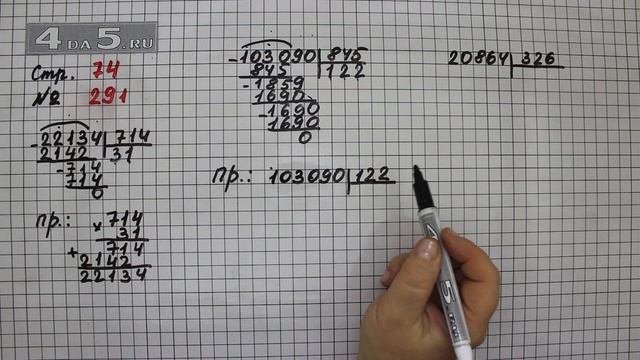 4 da 5.ru
Стр. 74
№ 291
- 22134 | 714
2142 | 31
- 714
714
0
пр.: × 714
31
+ 714
2142
22134
- 103090 | 845
845 | 122
- 1859
1690
- 1690
1690
0
пр.: 103090 | 122
20864 | 326